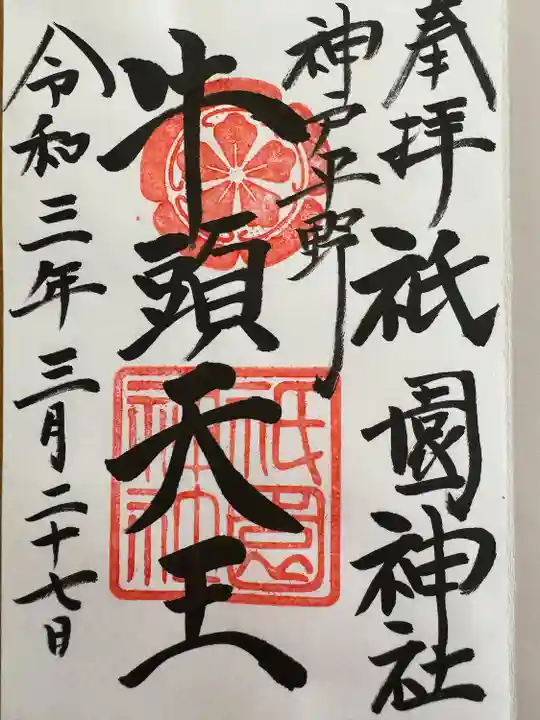 奉拝 祇園神社
神戸平野
牛頭天王
令和三年三月二十七日
祇園
神社